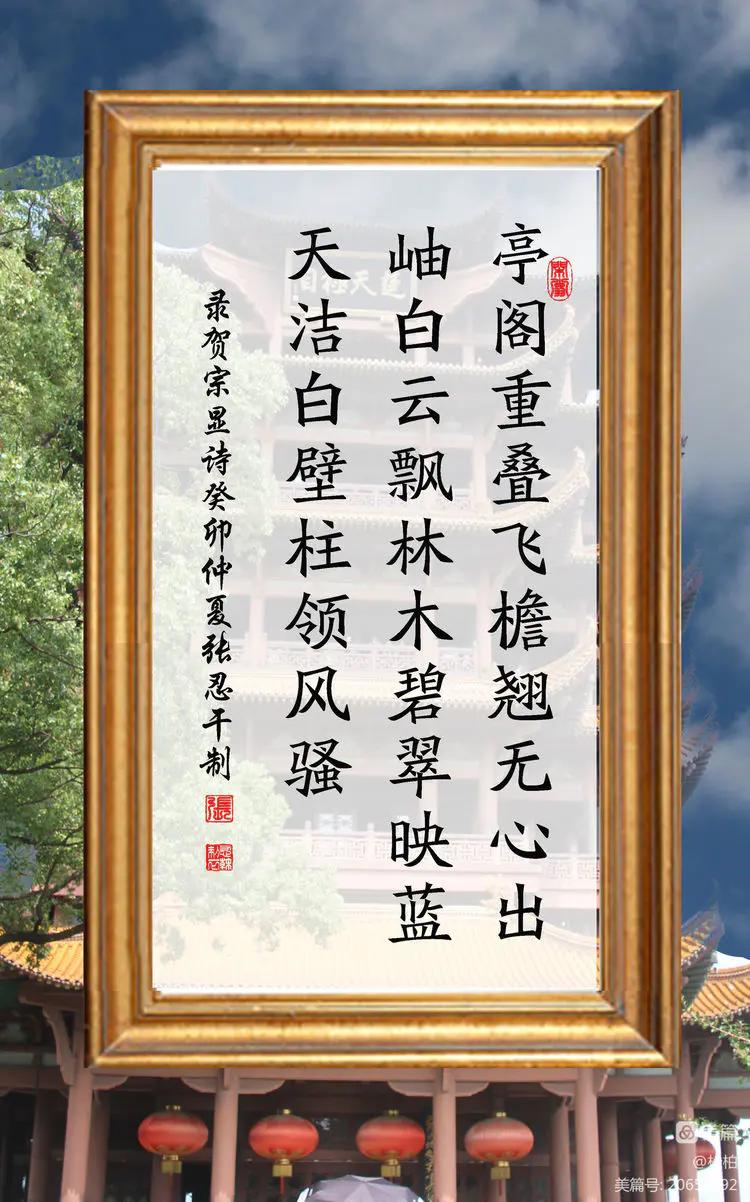 亭阁重叠飞檐翘无心出
岫白云飘林木碧翠映蓝
天洁白壁柱领风骚
录贺宗显诗癸卯仲夏张忍干制
張
美篇
@杨柏